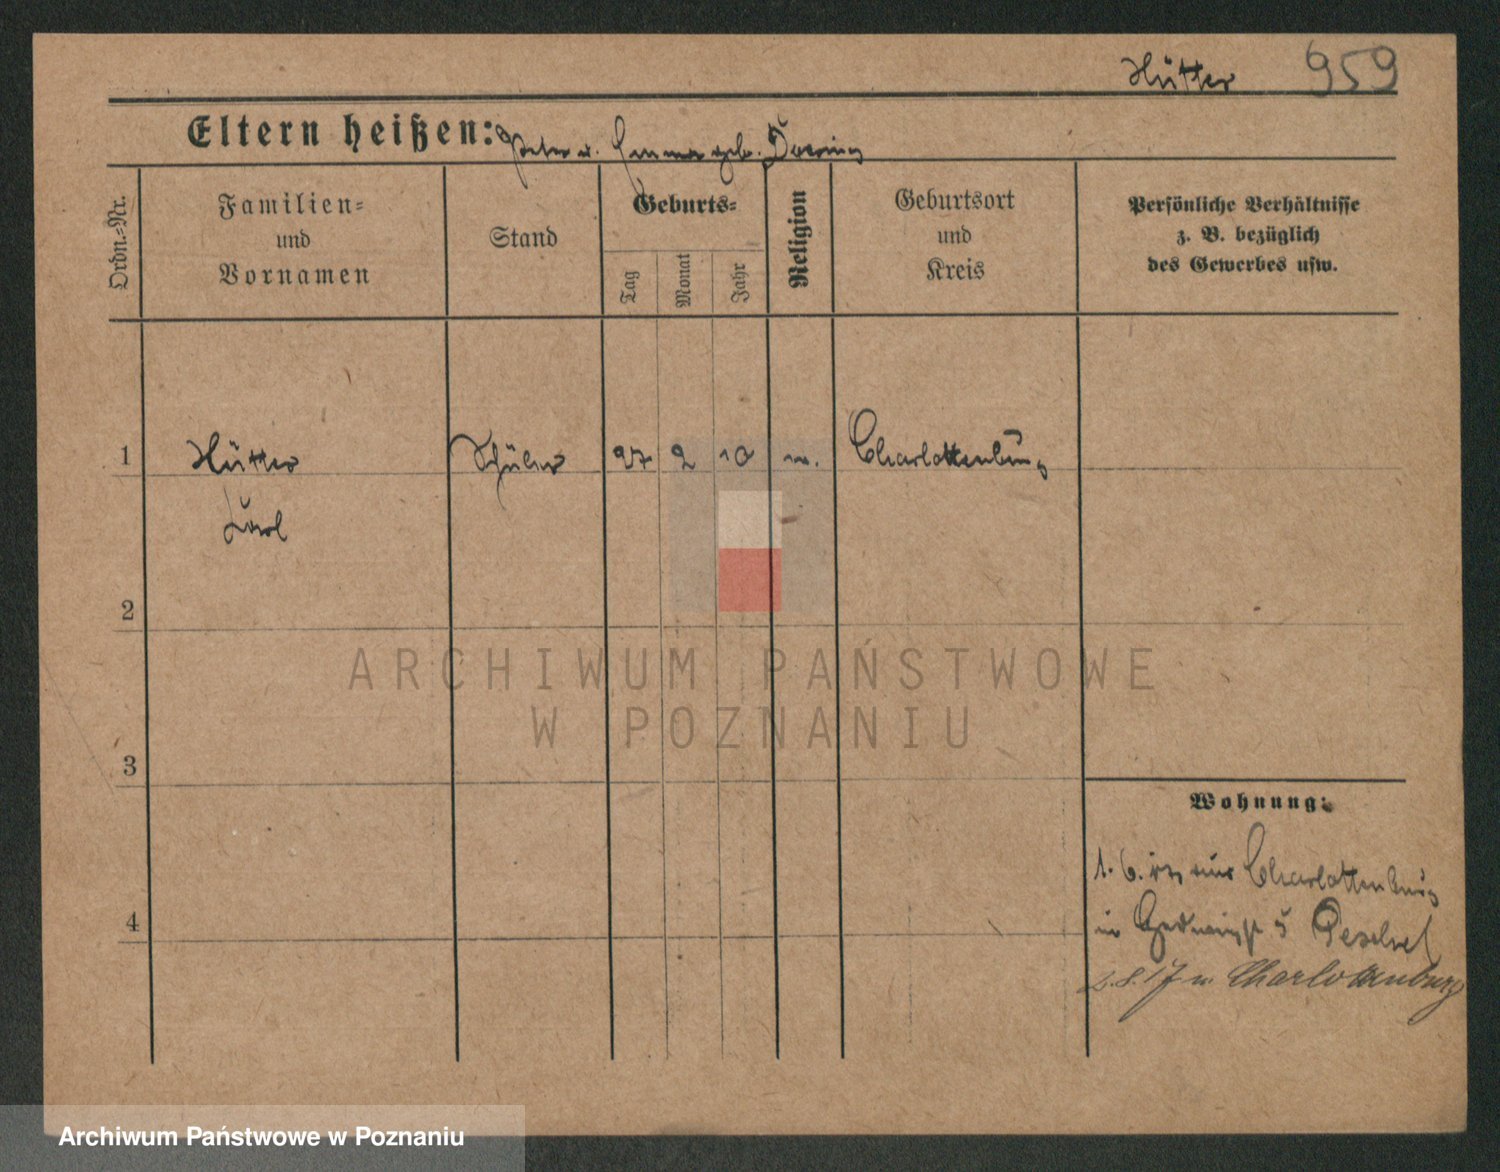 Hütter 959
Eltern heißen: Peter u. Emma geb. Doering
Ordn.-Nr.
Familien-
und
Vornamen
Stand
Geburts-
Tag
Monat
Jahr
Religion
Geburtsort
und
Kreis
Persönliche Verhältnisse
z. B. bezüglich
des Gewerbes usw.
1 Hütter Schüler 27 2 10 Charlottenburg
Karl
2
3
4
Wohnung:
1. 6. 17 aus Charlottenburg
in 5 Peschel
17 n. Charlottenburg
ARCHIWUM PAŃSTWOWE
W POZNANIU
Archiwum Państwowe w Poznaniu